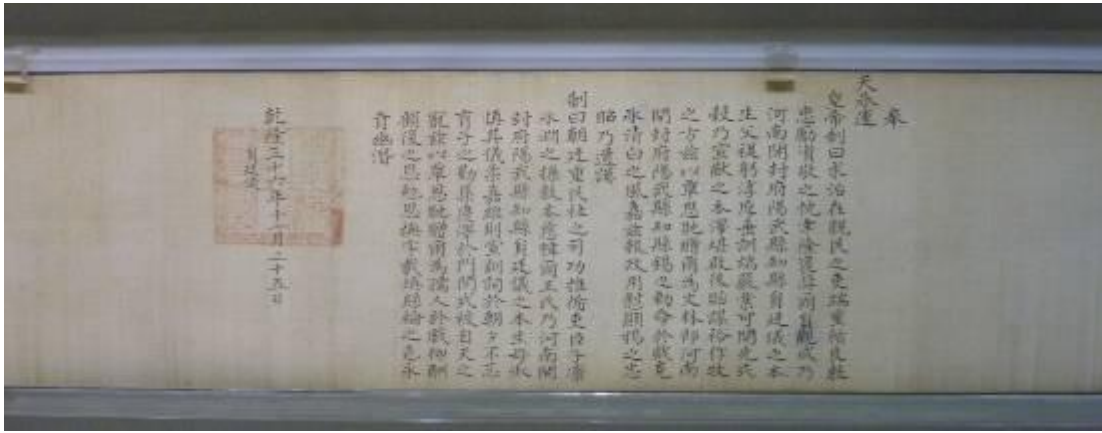 奉
天承運
皇帝制曰求治在親民之吏端重循良教
忠勵資敬之忱聿隆褒獎爾貟觀成乃
河南開封府陽武縣知縣貟廷儀之本
生父禔躬淳厚垂訓端嚴業可開先式
穀乃宣猷之本澤堪啟後貽謀裕作牧
之方茲以覃恩貤贈爾為文林郎河南
開封府陽武縣知縣錫之勅命於戲克
承清白之風嘉茲報政用慰顯揚之志
貽乃遺謨
制曰朝廷重民社之司功推循吏臣子凜
氷淵之操教本慈幃爾王氏乃河南開
封府陽武縣知縣貟廷儀之本生母淑
慎其儀柔嘉維則宣訓詞於朝夕不忘
育子之勤集慶澤於門閭式被自天之
寵茲以覃恩貤贈爾為孺人於戲仰酬
顧復之恩勉思撫字載煥絲綸之色永
賁幽潛
乾隆三十六年十一月二十五日
貟廷儀